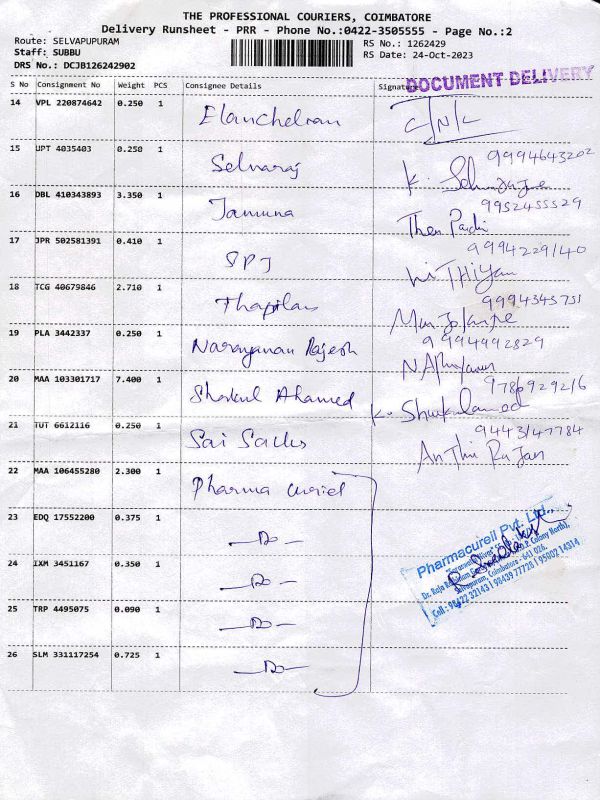 THE PROFESSIONAL COURIERS, COIMBATORE
Delivery Runsheet - PRR - Phone No.:0422-3505555 - Page No.:2
Route: SELVAPUPURAM RS No.: 1262429
Staff: SUBBU RS Date: 24-Oct-2023
DRS No.: DCJB126242902
DOCUMENT DELIVERY
S No Consignment No Weight PCS Consignee Details Signature
14 VPL 220874642 0.250 1 Elancheliran
15 UPT 4035403 0.250 1 Selvaraj 9994643202
16 DBL 410343893 3.350 1 Jamuna 9952455529
17 JPR 502581391 0.410 1 SPJ 9994229140
18 TCG 40679846 2.710 1 Thapilan 9994345751
19 PLA 3442337 0.250 1 Narayanan Rajesh 9994992829
20 MAA 103301717 7.400 1 Shakul Ahamed
21 TUT 6612116 0.250 1 Sai Sales 9443147784
AnThu RaJan
22 MAA 106455280 2.300 1 Pharma curiel
23 EDQ 17552200 0.375 1 -Do-
24 IXM 3451167 0.350 1 -Do-
25 TRP 4495075 0.090 1 -Do-
26 SLM 331117254 0.725 1 -Do-
Pharmacureil Pvt. Ltd.,
Selvapuram, Coimbatore - 641 026.
Cell : 98422 32143 | 98439 77728 | 95002 14314